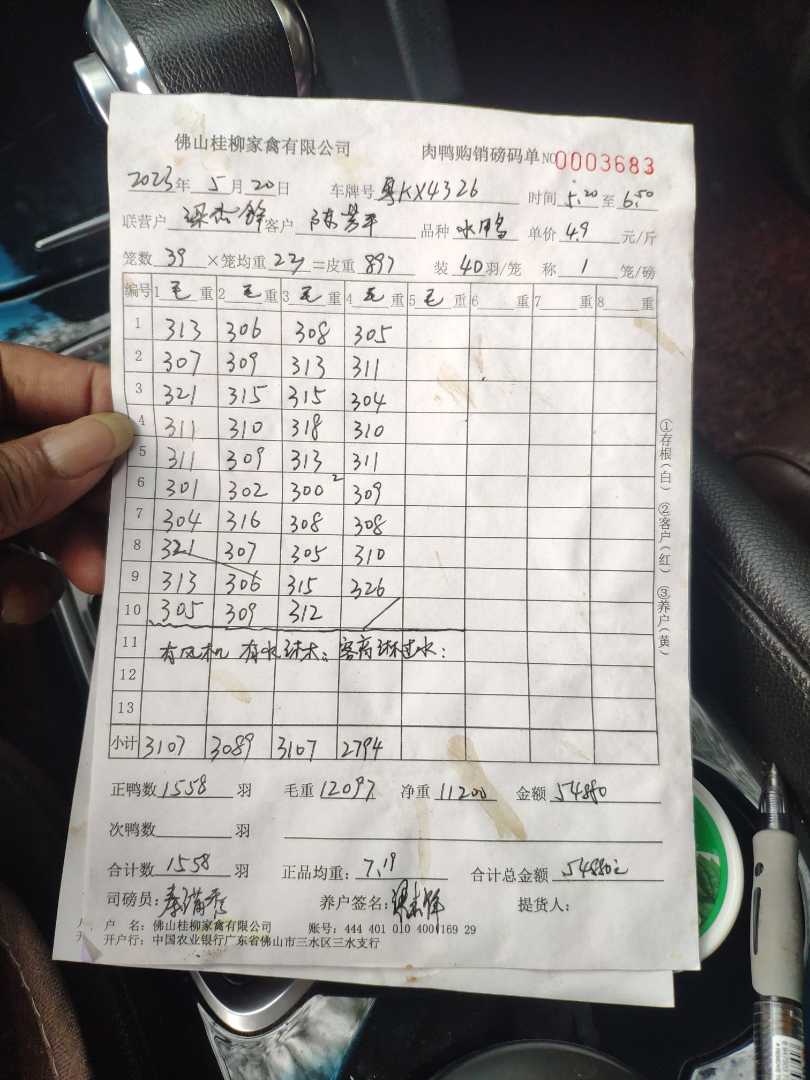 佛山桂柳家禽有限公司 肉鸭购销磅码单 NO 0003683
2023年 5月 20日 车牌号 粤KX4326 时间 5.20 至 6.50
联营户 客户 陈 平 品种 水鸭 单价 4.9 元/斤
笼数 39 ×笼均重 23 =皮重 897 装 40 羽/笼 称 1 笼/磅
编号 1 毛 重 2 毛 重 3 毛 重 4 毛 重 5 毛 重 6 重 7 重 8 重
1 313 306 308 305
2 307 309 313 311
3 321 315 315 304
4 311 310 318 310
5 311 309 313 311
6 301 302 300 2 309
7 304 316 308 308
8 321 307 305 310
9 313 306 315 326
10 305 309 312
11 有风机 有水
12
13
小计 3107 3089 3107 2794
正鸭数 1558 羽 毛重 12097 净重 11200 金额 54880
次鸭数 羽
合计数 1558 羽 正品均重: 7.19 合计总金额 54880元
司磅员: 秦满 养户签名: 提货人:
户 名: 佛山桂柳家禽有限公司 账号: 444 401 010 400 169 29
开户行: 中国农业银行广东省佛山市三水区三水支行
①存根(白) ②客户(红) ③养户(黄)